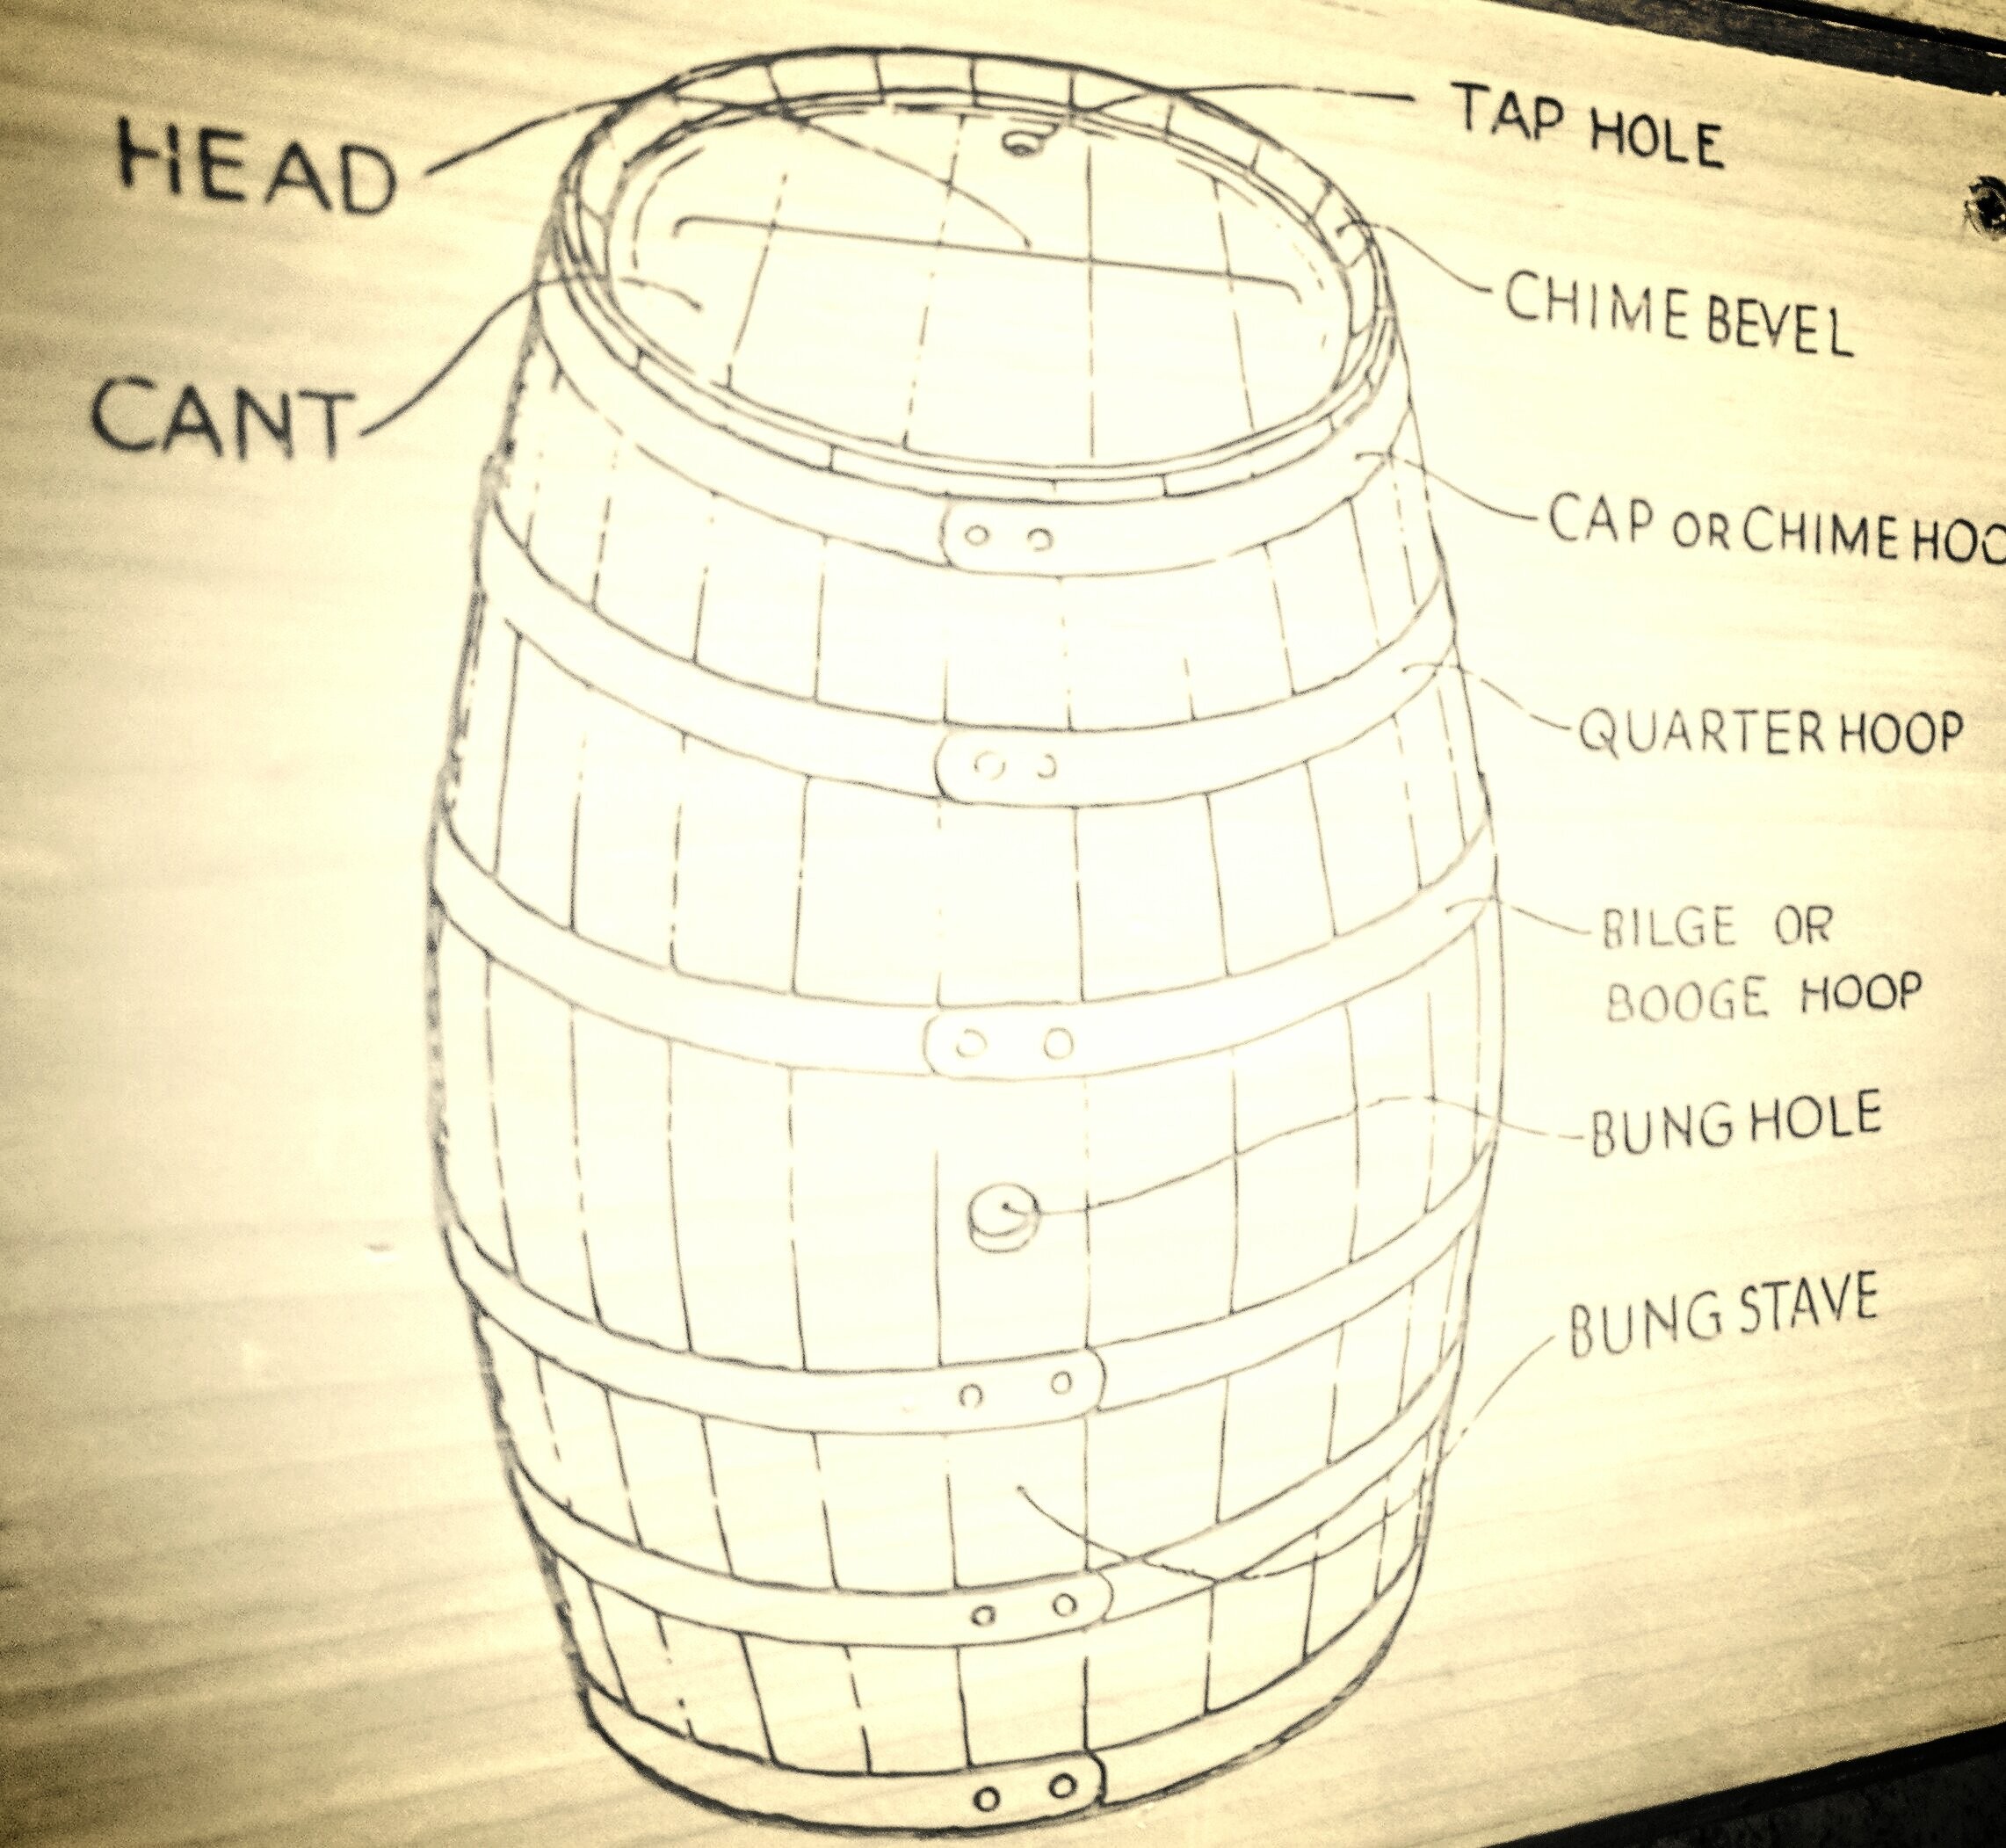 HEAD
CANT
TAP HOLE
CHIME BEVEL
CAP OR CHIME HOO
QUARTER HOOP
BILGE OR
BOOGE HOOP
BUNG HOLE
BUNG STAVE